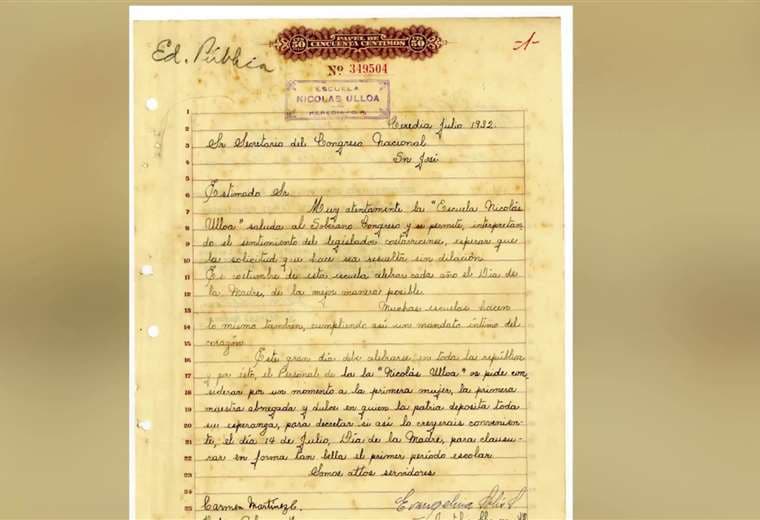 PAPEL DE
50 CINCUENTA CENTIMOS 50
Ed. Pública
-1-
Nº 349504
ESCUELA
NICOLAS ULLOA
HEREDIA
1
2 Heredia Julio 1932.
3 Sr Secretario del Congreso Nacional
4 Sn José
5
6 Estimado Sr.
7 Muy atentamente la "Escuela Nicolás
8 Ulloa" saluda al Soberano Congreso y se permite, interpretan
9 do el sentimiento del legislador costarricense, esperar que
10 la solicitud que hace sea resuelta sin dilación.
11 Es costumbre de esta escuela celebrar cada año el Día de
12 la Madre, de la mejor manera posible.
13 Muchas escuelas hacen
14 lo mismo también, cumpliendo así un mandato íntimo del
15 corazón
16 Este gran día debe celebrarse en toda la república
17 y por esto, el Personal de la la "Nicolás Ulloa" os pide con
18 siderar por un momento a la primera mujer, la primera
19 maestra abnegada y dulce en quien la patria deposita toda
20 su esperanza, para decretar si así lo creyerais convenien-
21 te, el día 14 de Julio, Día de la Madre, para clausu-
22 rar en forma tan bella el primer período escolar.
23 Somos attos servidores
24
25 Carmen Martínez C. Evangelina Solís S